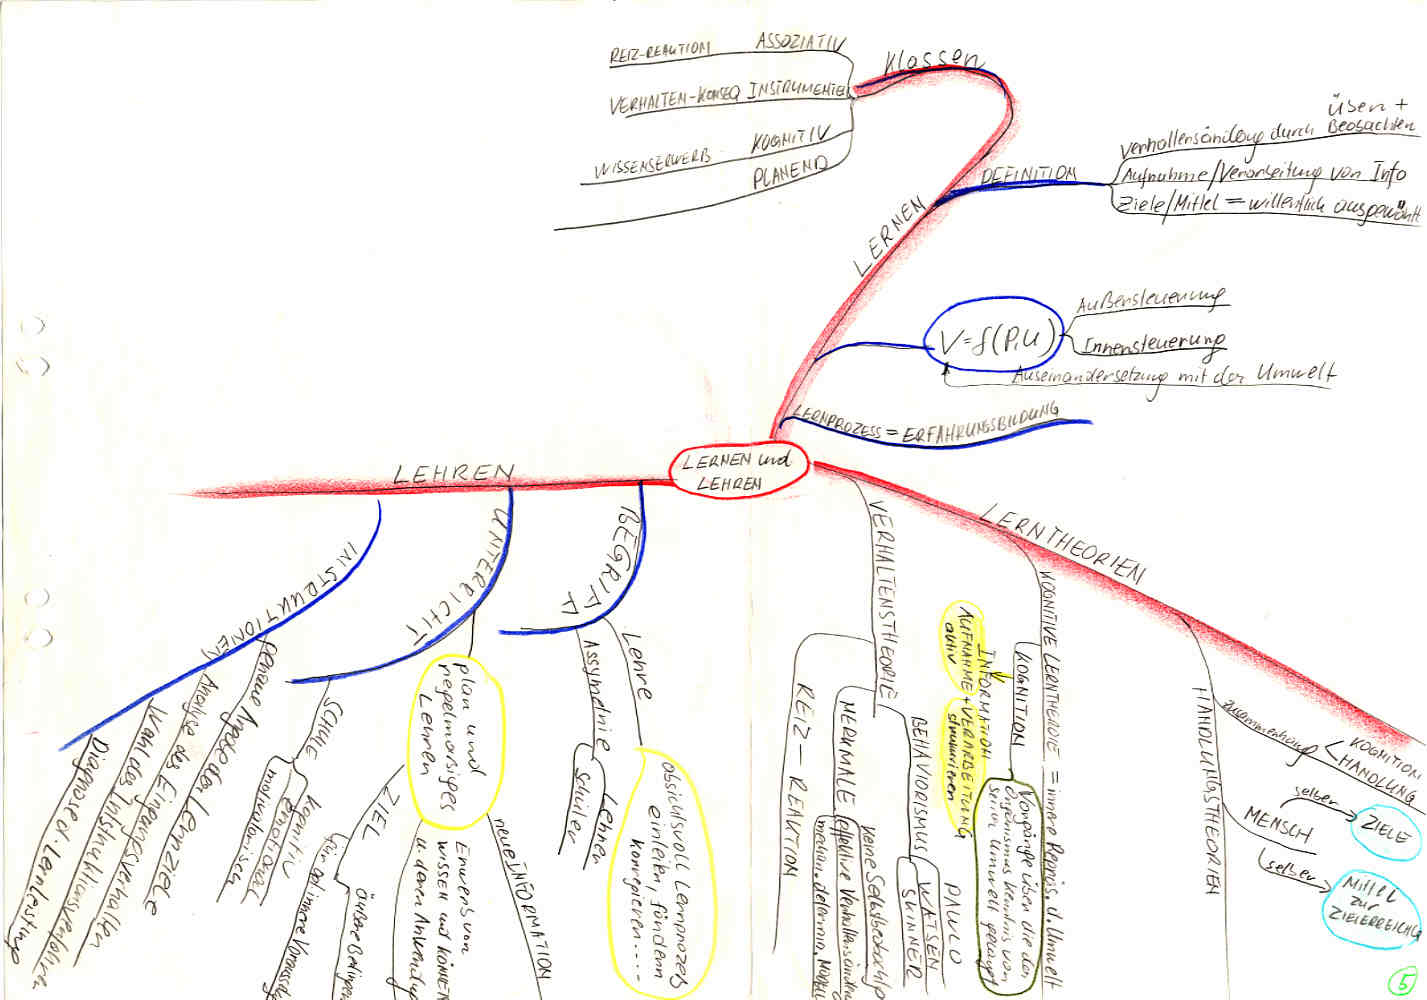 Klassen
REIZ-REAKTION ASSOZIATIV
VERHALTEN-KONSEQ INSTRUMENTEL
WISSENSERWERB KOGNITIV
PLANEND
LERNEN
DEFINITION
üben +
durch Beobachten
Aufnahme/Verarbeitung von Info
Ziele/Mittel = willentlich ausgewählt
V=f(P,U)
Außensteuerung
Innensteuerung
Auseinandersetzung mit der Umwelt
LERNPROZESS = ERFAHRUNGSBILDUNG
LERNEN und
LEHREN
LEHREN
BEGRIFF
Lehre
absichtsvoll Lernprozeß
einleiten, fördern
korrigieren....
Assymetrie
Lehrer
Schüler
UNTERRICHT
plan und
regelmässiges
Lehren
neue INFORMATION
Erwerb von
WISSEN und KÖNNEN
ZIEL
für
SCHULE
kognitiv
emotional
motivatorisch
INSTRUKTIONEN
genaue Angabe der Lernziele
Analyse des Eingangsverhalten
Wahl des Instruktionsverfahren
Diagnose d. Lernleistung
LERNTHEORIEN
VERHALTENSTHEORIE
REIZ - REAKTION
MERKMALE
BEHAVIORISMUS
PAWLO
WATSEN
SKINNER
KOGNITIVE LERNTHEORIE = innere Repräs. d. Umwelt
KOGNITION
Vorgänge über die der
Organismus Kenntnis von
seiner Umwelt gelangt
INFORMATION
AUFNAHME + VERARBEITUNG
aktiv strukturieren
HANDLUNGSTHEORIEN
Zusammenhang
KOGNITION
HANDLUNG
MENSCH
selber
ZIELE
selber
Mittel
zur
ZIELERREICHG
5